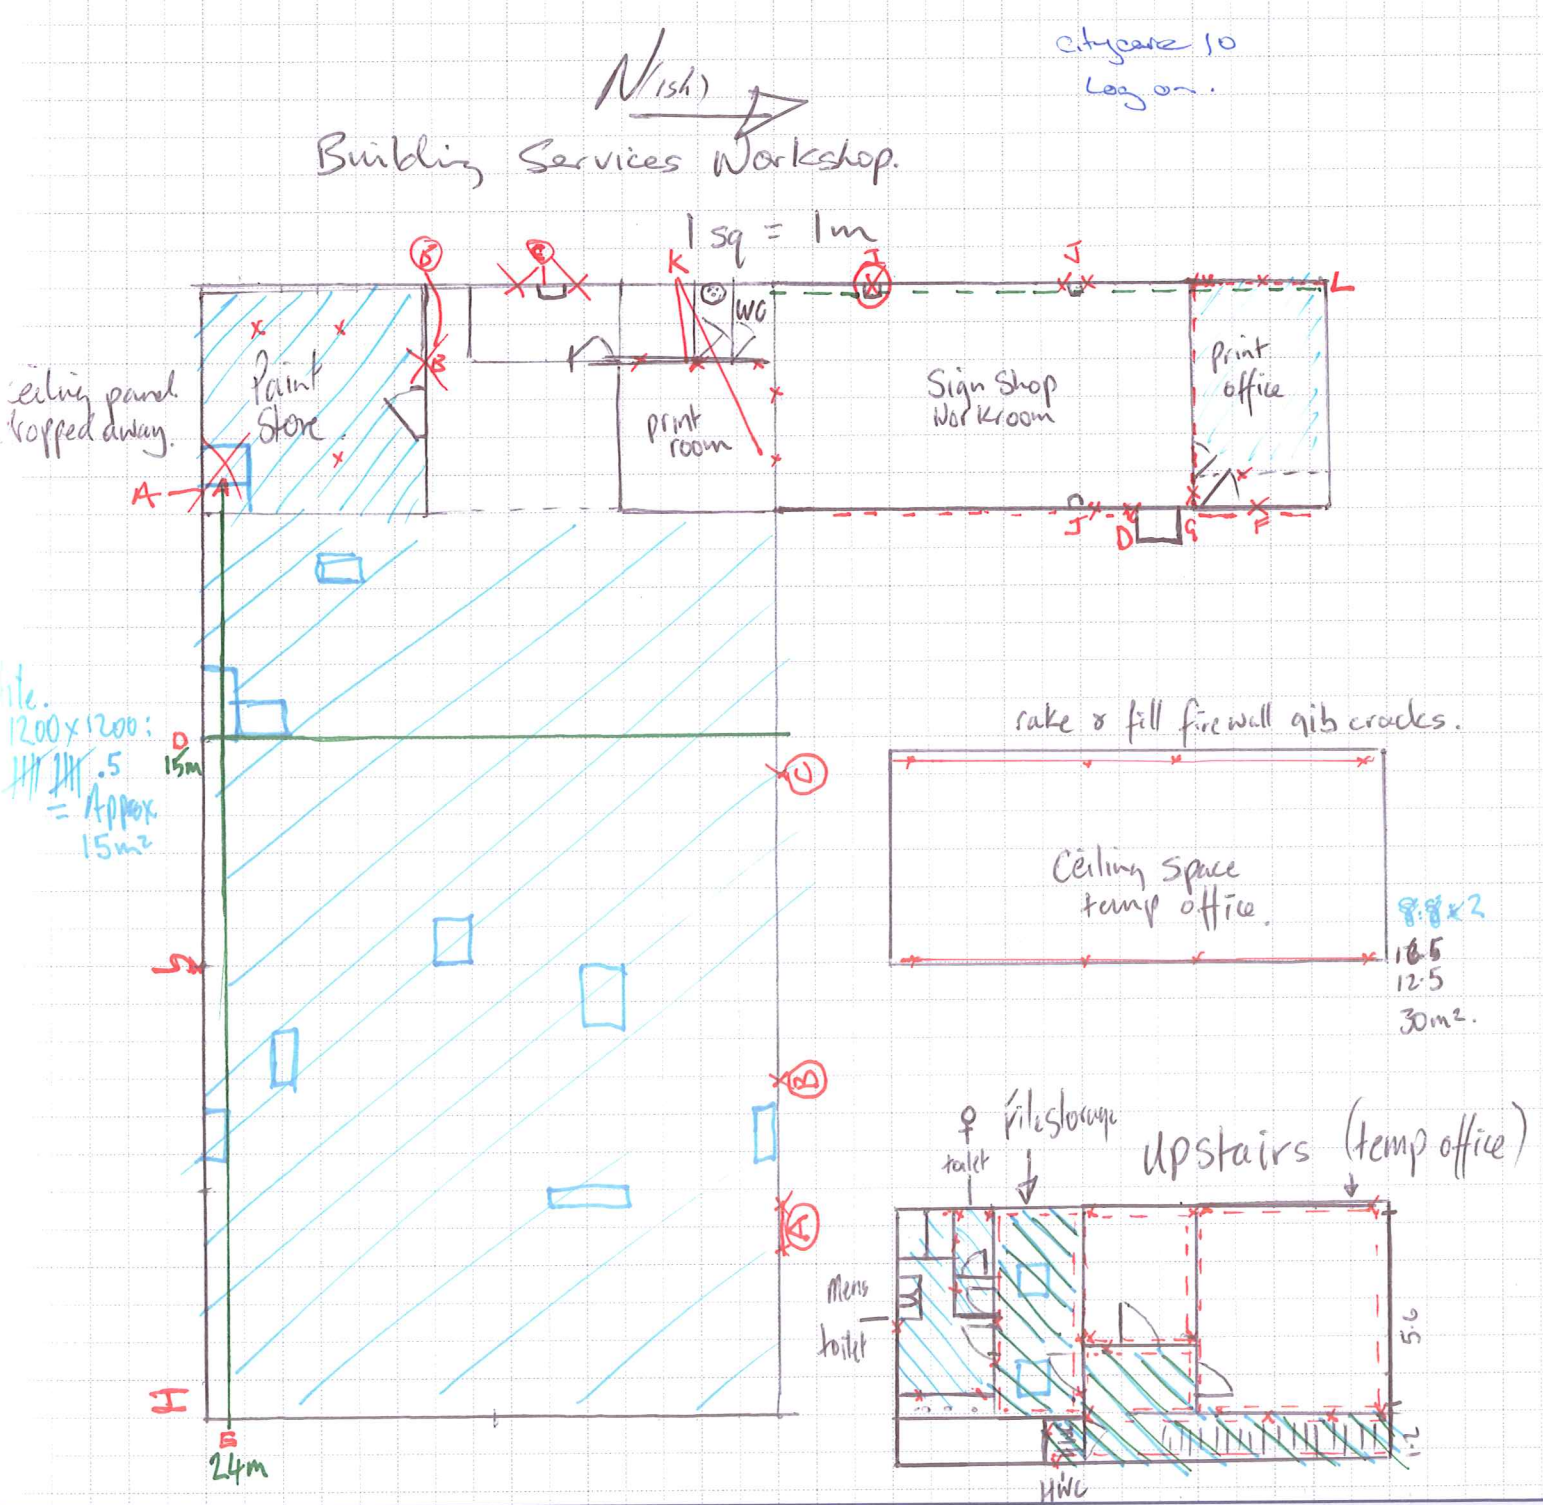 citycare 10
Log on.
N(ish)
Building Services Workshop.
1 sq = 1m
B
C
K
J
J
L
WC
B
Paint
Store.
eiling panel
ropped away.
A
A
print
room
Sign Shop
Workroom
print
office
J
D
G
F
ile.
1200x1200:
.5
= Approx.
15m²
D
15m
C
rake & fill firewall gib cracks.
Ceiling space
temp office.
8.8 x 2
12.5
30m².
B
A
I
E
24m
♀
toilet
file storage
Upstairs (temp office)
Mens
toilet
5.6
1.2
HWC